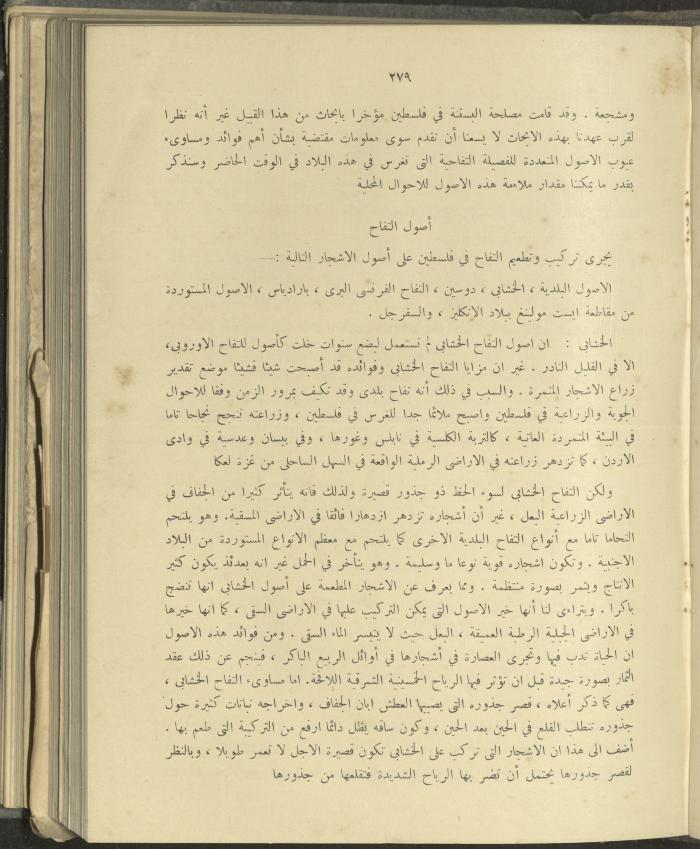 ٢٧٩
ومشجعة . وقد قامت مصلحة البستنة في فلسطين مؤخرا بابحاث من هذا القبيل غير أنه نظرا
لقرب عهدنا بهذه الابحاث لا يسعنا أن نقدم سوى معلومات مقتضبة بشأن أهم فوائد ومساوىء
عيوب الاصول المتعددة للفصيلة التفاحية التى تغرس في هذه البلاد في الوقت الحاضر وسنذكر
بقدر ما يمكننا مقدار ملاءمة هذه الاصول للاحوال المحلية
أصول التفاح
يجرى تركيب وتطعيم التفاح في فلسطين على أصول الاشجار التالية :—
الاصول البلدية ، الخشابى ، دوسين ، التفاح الفرنسى البرى ، بارادياس ، الاصول المستوردة
من مقاطعة ايست مولينغ ببلاد الانكليز ، والسفرجل .
الخشابى : ان اصول التفاح الخشابى لم تستعمل لبضع سنوات خلت كأصول للتفاح الاوروبى،
الا في القليل النادر . غير ان مزايا التفاح الخشابى وفوائده قد أصبحت شيئا فشيئا موضع تقدير
زراع الاشجار المثمرة . والسبب في ذلك أنه تفاح بلدى وقد تكيف بمرور الزمن وفقا للاحوال
الجوية والزراعية في فلسطين واصبح ملائما جدا للغرس في فلسطين ، وزراعته تنجح نجاحا تاما
في البيئة المتمردة العاتية ، كالتربة الكلسية في نابلس وغورها ، وفي بيسان وعدسية في وادى
الاردن ، كما تزدهر زراعته في الاراضى الرملية الواقعة في السهل الساحلى من غزة لعكا
ولكن التفاح الخشابى لسوء الحظ ذو جذور قصيرة ولذلك فانه يتأثر كثيرا من الجفاف في
الاراضى الزراعية البعل ، غير أن أشجاره تزدهر ازدهارا فائقا في الاراضى المسقية. وهو يلتحم
التحاما تاما مع أنواع التفاح البلدية الاخرى كما يلتحم مع معظم الانواع المستوردة من البلاد
الاجنبية . وتكون اشجاره قوية نوعا ما وسليمة . وهو يتأخر في الحمل غير انه بعدئذ يكون كثير
الانتاج ويثمر بصورة منتظمة . ومما يعرف عن الاشجار المطعمة على أصول الخشابى انها تنضج
باكرا . ويتراءى لنا أنها خير الاصول التى يمكن التركيب عليها في الاراضى السقى ، كما انها خيرها
في الاراضى الجبلية الرطبة العميقة ، البعل حيث لا يتيسر الماء السقى . ومن فوائد هذه الاصول
ان الحياة تدب فيها وتجرى العصارة في أشجارها في أوائل الربيع الباكر ، فينجم عن ذلك عقد
الثمار بصورة جيدة قبل ان تؤثر فيها الرياح الخمسينية الشرقية اللافحة. اما مساوىء التفاح الخشابى ،
فهى كما ذكر أعلاه ، قصر جذوره التى يصيبها العطش ابان الجفاف ، واخراجه نباتات كثيرة حول
جذوره تتطلب القلع في الحين بعد الحين ، وكون ساقه يظل دائما ارفع من التركيبة التى طعم بها .
أضف الى هذا ان الاشجار التى تركب على الخشابى تكون قصيرة الاجل لا تعمر طويلا ، وبالنظر
لقصر جذورها يحتمل أن تضر بها الرياح الشديدة فتقلعها من جذورها